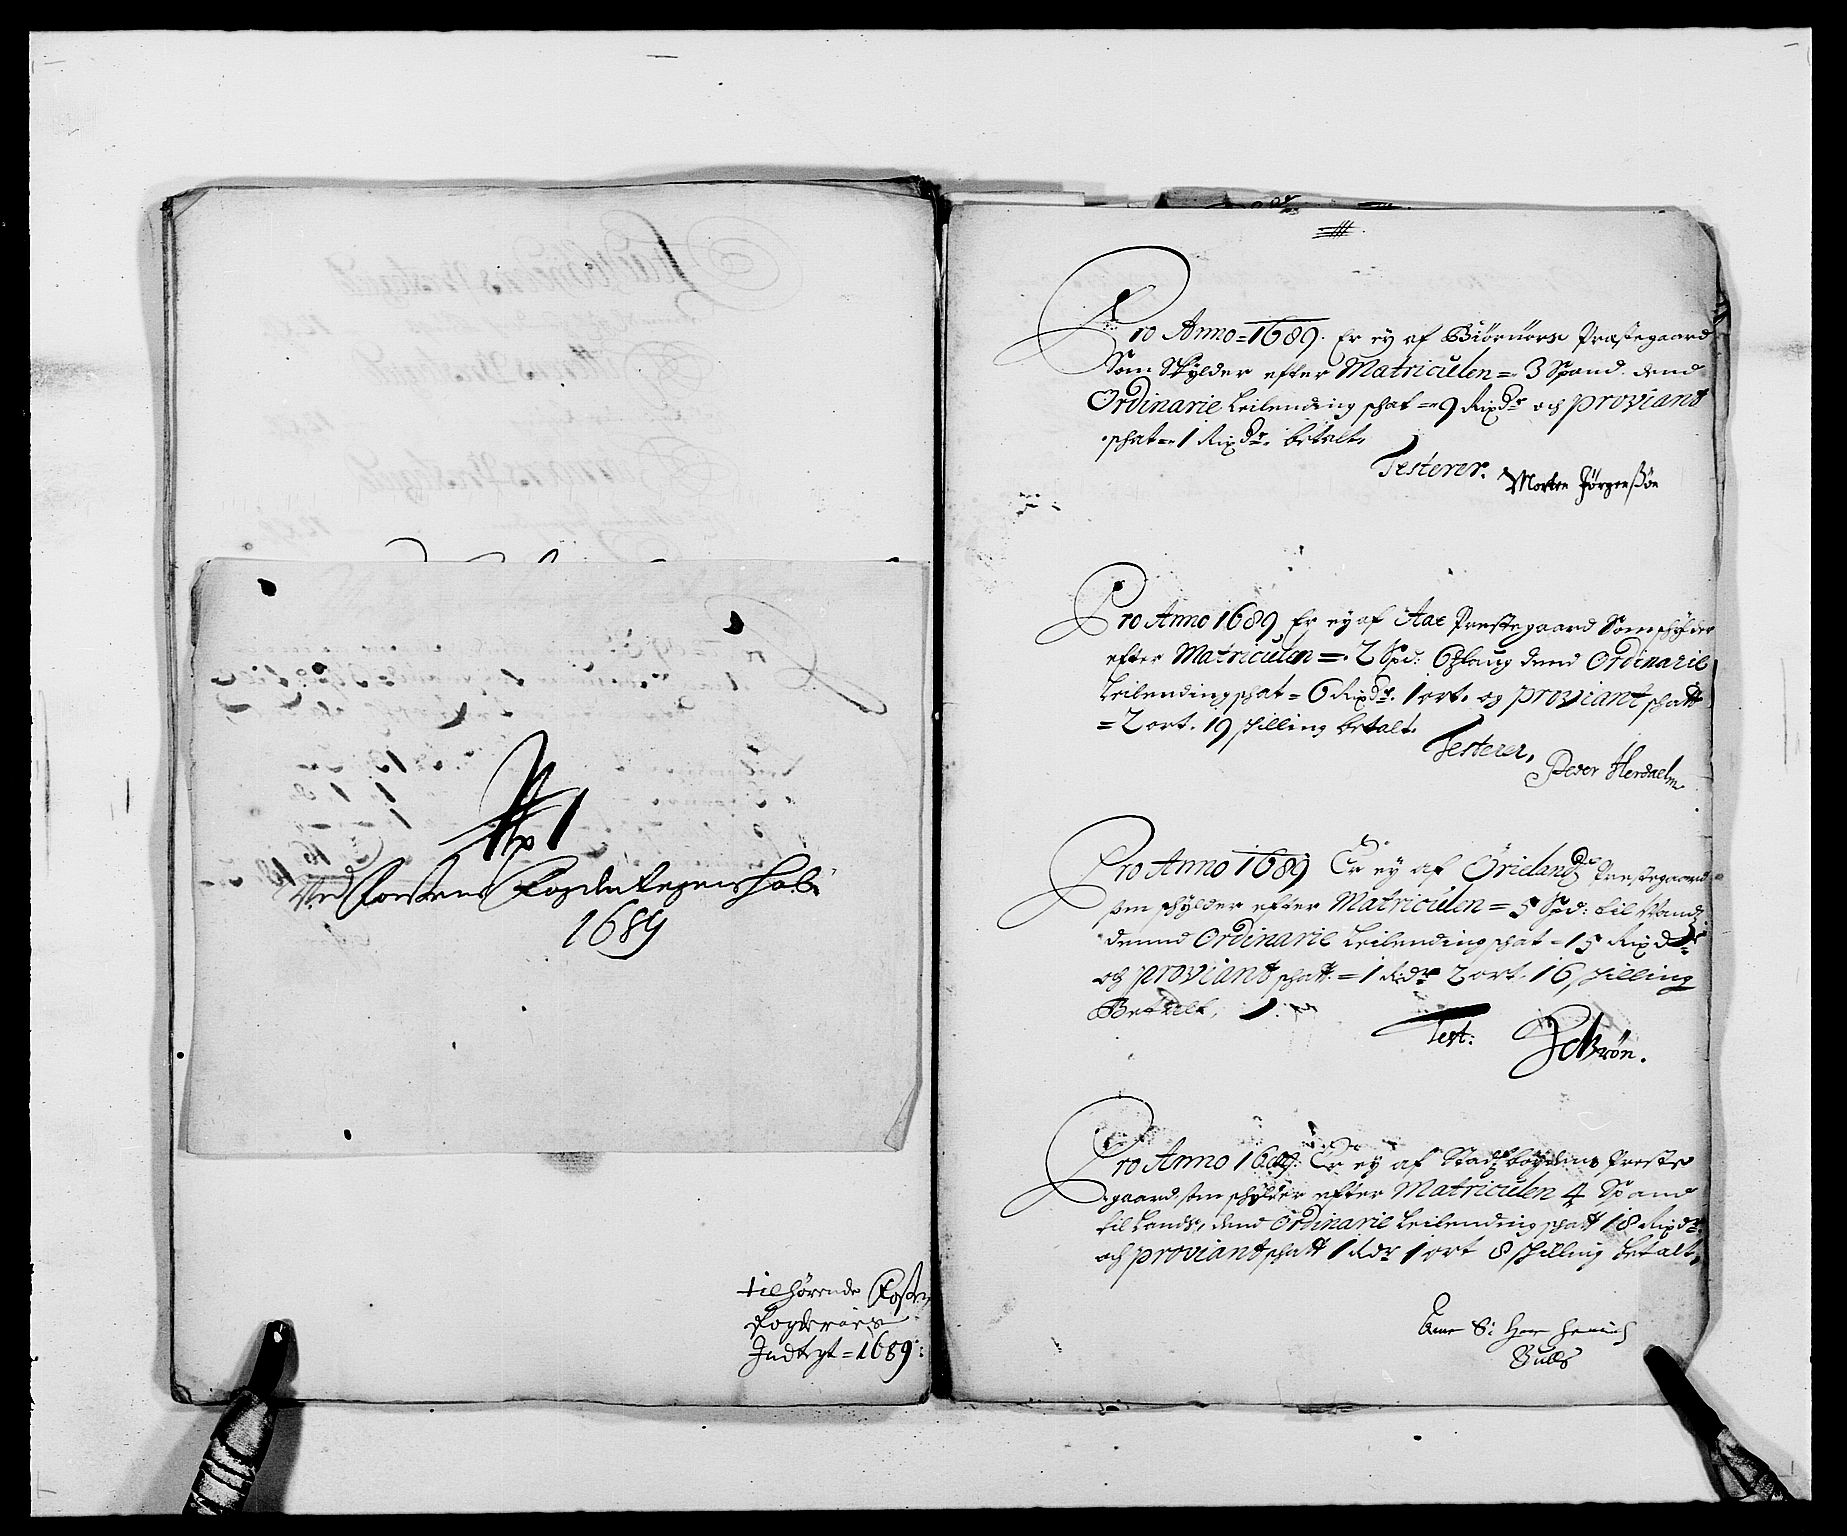 No 1
Ved Fosens Fogderiregenskab
1689
tilhørende Fosen
Fogderies
Indtegt = 1689:
Pro Anno = 1689. Er ey af Biørnørs Præstegaard
Som Skylder efter Matriculen = 3 Spand. dend
Ordinarie Leilending schat = 9 Rixdr och proviant
schat = 1 Rixdr. betalt,
Testerer. Morten Jørgensøn
Pro Anno 1689 Er ey af Aae Prestegaard Som schylder
efter Matriculen = 2 Spd: 6 laug dend Ordinarie
Leilending schat = 6 Rixdr. 1 ort. og proviant schatt
= 2 ort. 19 skilling betalt.
Testerer,
Peder
Pro Anno 1689 Er ey af Ørieland Prestegaard
som schylder efter Matriculen = 5 Spd: til
dennd Ordinarie Leilending schat = 15 Rixdr
och proviant schatt. = 1 Rdr 2 ort. 16 skilling
Betalt,
Test:
Pro Anno 1689: Er ey af Stadsbøydens Preste
gaard som schylder efter Matriculen 4 Spand
til Lands, dend Ordinarie Leilending schatt 18 Rixdr
och proviant schatt 1 Rdr 1 ort 8 skilling betalt,
Henrich